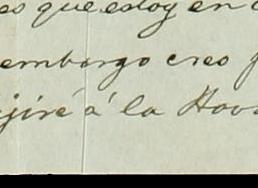 es que estoy en
embargo creo
jiré á la Hav